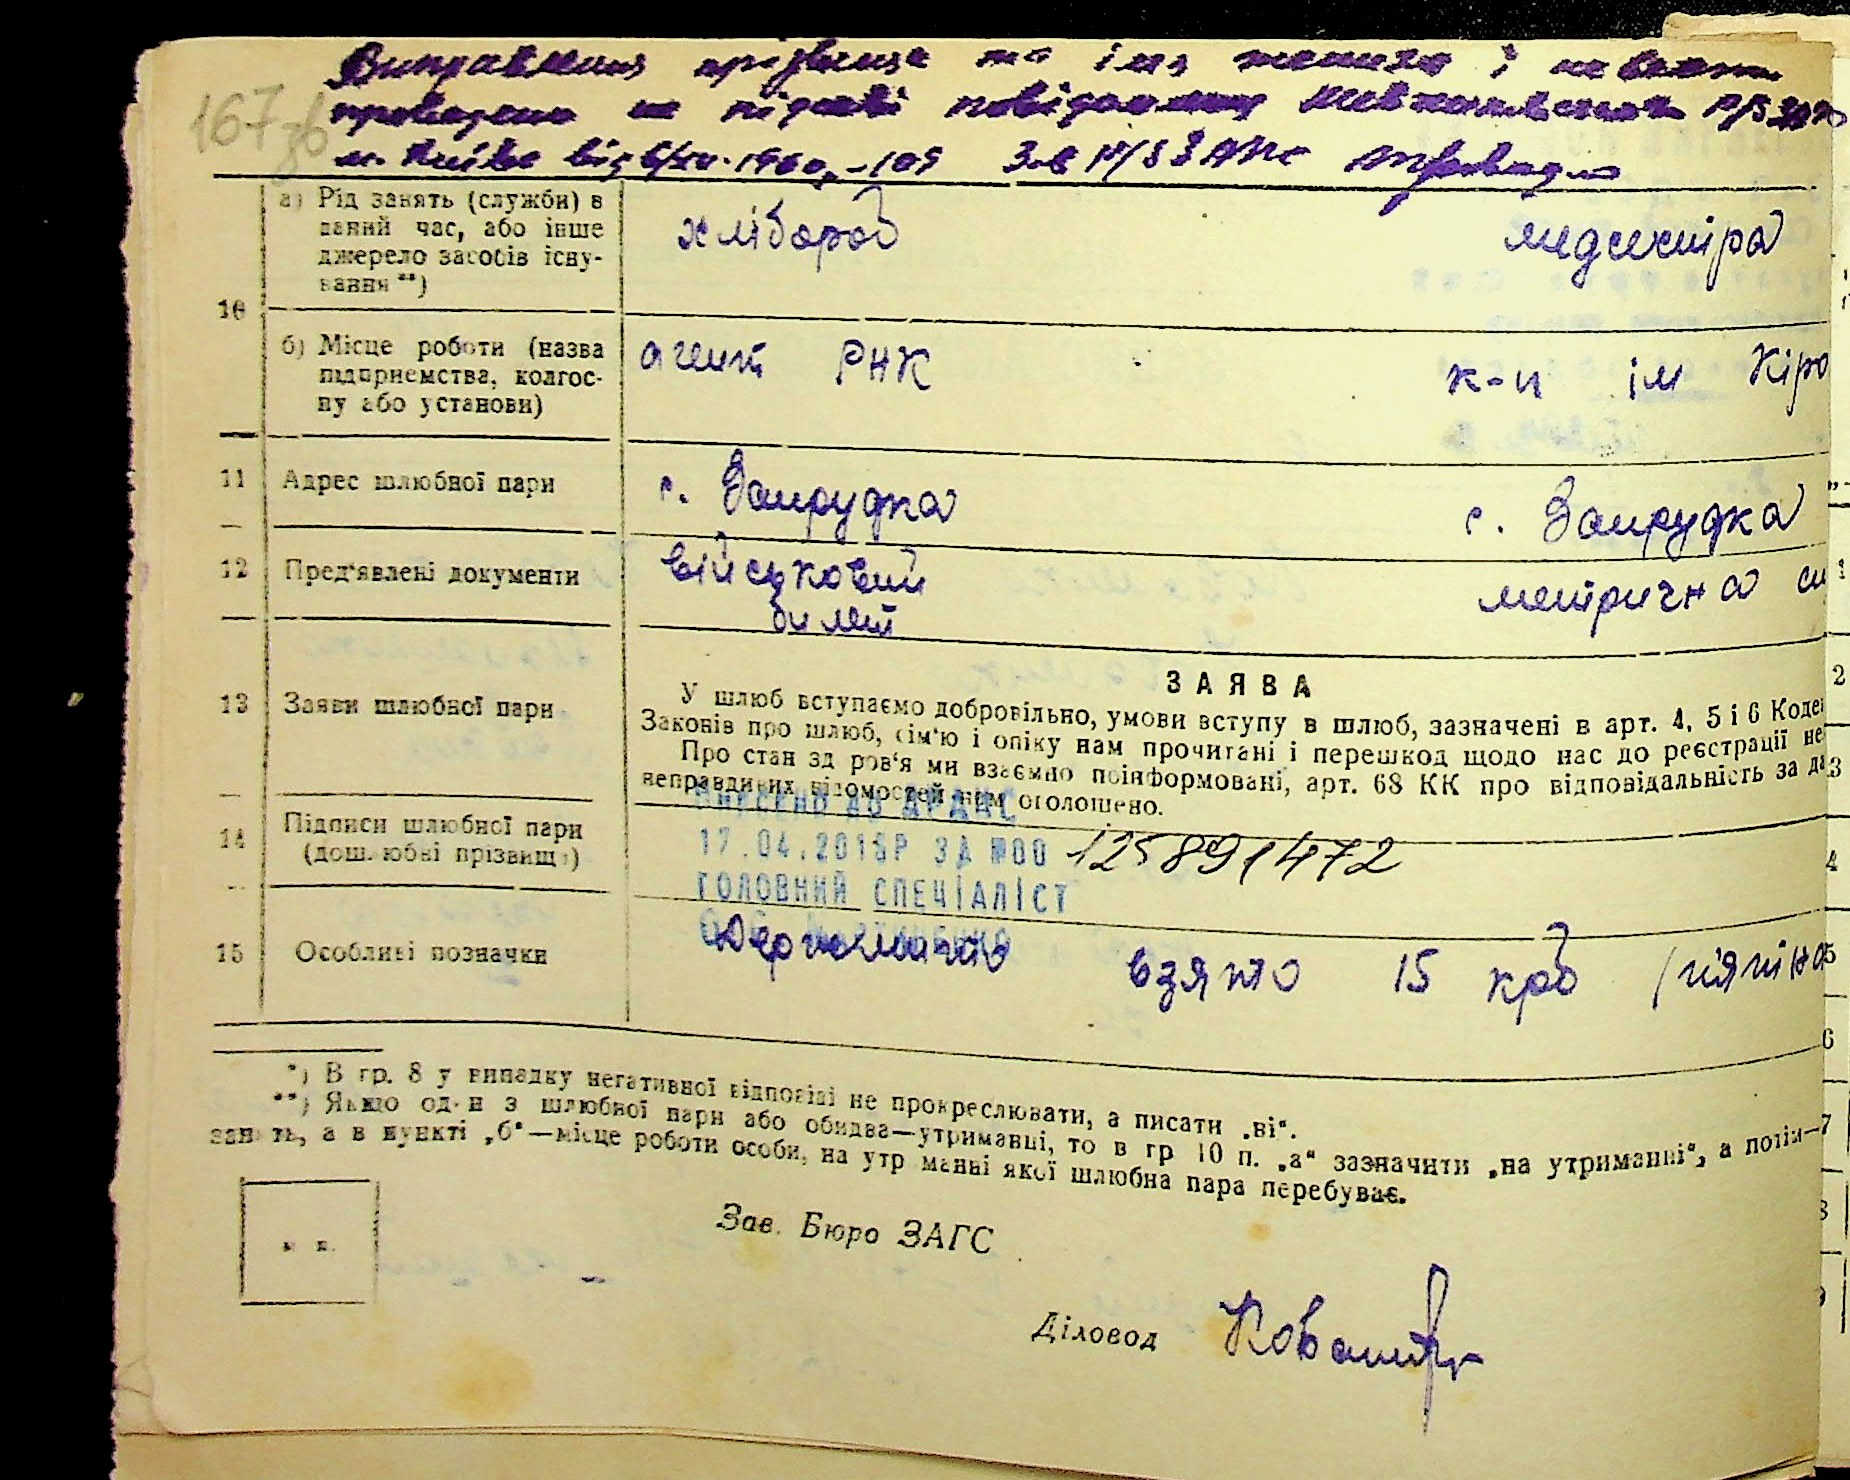 Виправлення прізвище та імя жениха і невести
проведено на підставі повідомлення р/Загс
м. Києва від 6/XII-1960 р. - 109 Зав р/ЗАГС
167зв
10
а) Рід занять (служби) в даний час, або інше джерело засобів існування **)
хлібороб
медсестра
б) Місце роботи (назва підприємства, колгоспу або установи)
агент РНК
к-п ім Кіро
11
Адрес шлюбної пари
с. Запрудка
с. Запрудка
12
Пред'явлені документи
військовий
билет
метрична
13
Заяви шлюбної пари
ЗАЯВА
У шлюб вступаємо добровільно, умови вступу в шлюб, зазначені в арт. 4, 5 і 6 Коде
Законів про шлюб, сім'ю і опіку нам прочитані і перешкод щодо нас до реєстрації не
Про стан здоров'я ми взаємно поінформовані, арт. 68 КК про відповідальність за да
неправдивих відомостей нам оголошено.
14
Підписи шлюбної пари
(дошлюбні прізвища)
ВНЕСЕНО ДО ДРАЦС
17.04.2018Р ЗА №00 125891472
ГОЛОВНИЙ СПЕЦІАЛІСТ
15
Особливі позначки
Держмито взято 15 крб (пятна
*) В гр. 8 у випадку негативної відповіді не прокреслювати, а писати „ні“.
**) Якщо один з шлюбної пари або обидва—утриманці, то в гр 10 п. „а“ зазначити „на утриманні“, а потім—
занять, а в пункті „б“—місце роботи особи, на утриманні якої шлюбна пара перебуває.
м п.
Зав. Бюро ЗАГС
Діловод